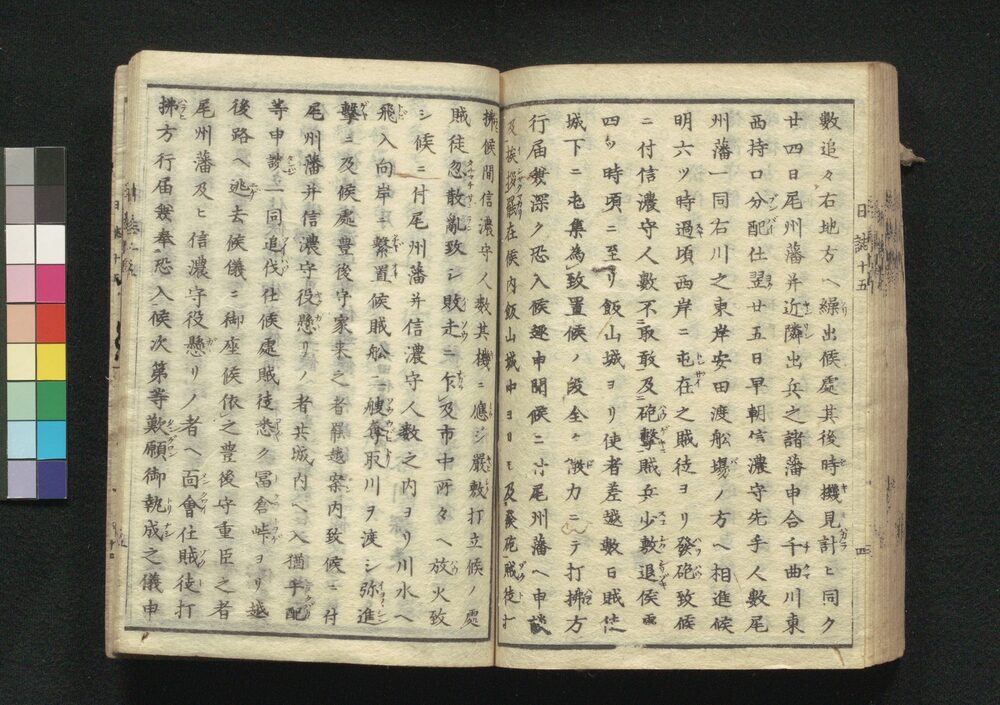 數追々右地方へ繰出候處其後時機見計ヒ同ク
廿四日尾州藩并近隣出兵之諸藩申合千曲川東
西持口分配仕翌廿五日早朝信濃守先手人數尾
州藩一同右川之東岸安田渡舩場ノ方へ相進候
明六ツ時過頃西岸ニ屯在之賊徒ヨリ發砲致候
ニ付信濃守人數不取敢及砲擊賊兵少敷退候
四ツ時頃ニ至リ飯山城ヨリ使者差越數日賊徒
城下ニ屯集為致置候ノ段全ク微力ニテ打拂方
行届兼深ク恐入候趣申聞候ニ付尾州藩へ申談
及挨拶罷在候内飯山城中ヨリモ及發砲賊徒打
拂候間信濃守人數其機ニ應シ嚴敷打立候ノ處
賊徒忽散亂致シ敗走ニ乍及市中所々へ放火致
シ候ニ付尾州藩并信濃守ノ人數之内ヨリ川水へ
飛入向岸ニ繋置候賊舩二艘奪取川ヲ渡シ弥進
擊ニ及候處豊後守家来之者罷越案内致候ニ付
尾州藩并信濃守役懸リノ者共城内へ入猶手配
等申談一同追伐仕候處賊徒悉ク冨倉峠ヲリ越
後路へ逃去候儀ニ御座候依之豊後守重臣之者
尾州藩及ヒ信濃守役懸リノ者へ面會仕賊徒打
拂方行届兼奉恐入候次第等歎願御執成之儀申
日誌十五
四